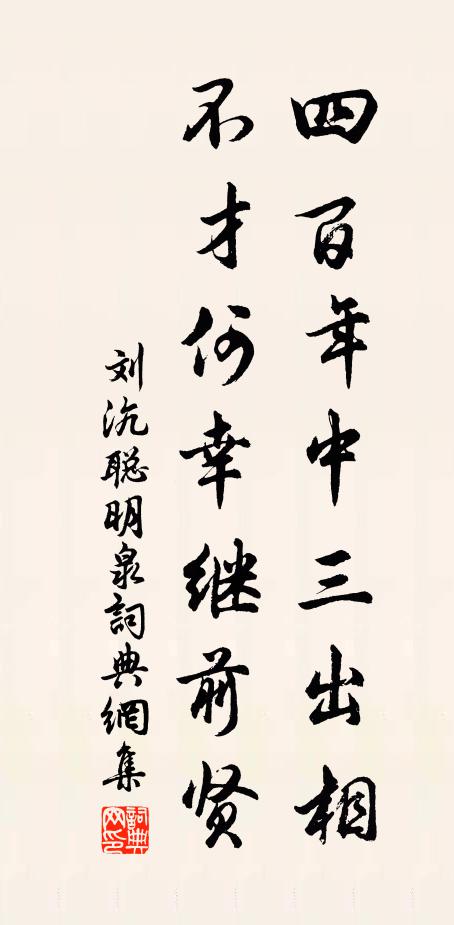 四百年中三出相
不才何幸继前贤
刘沆聪明泉詞典網集
詞典网印